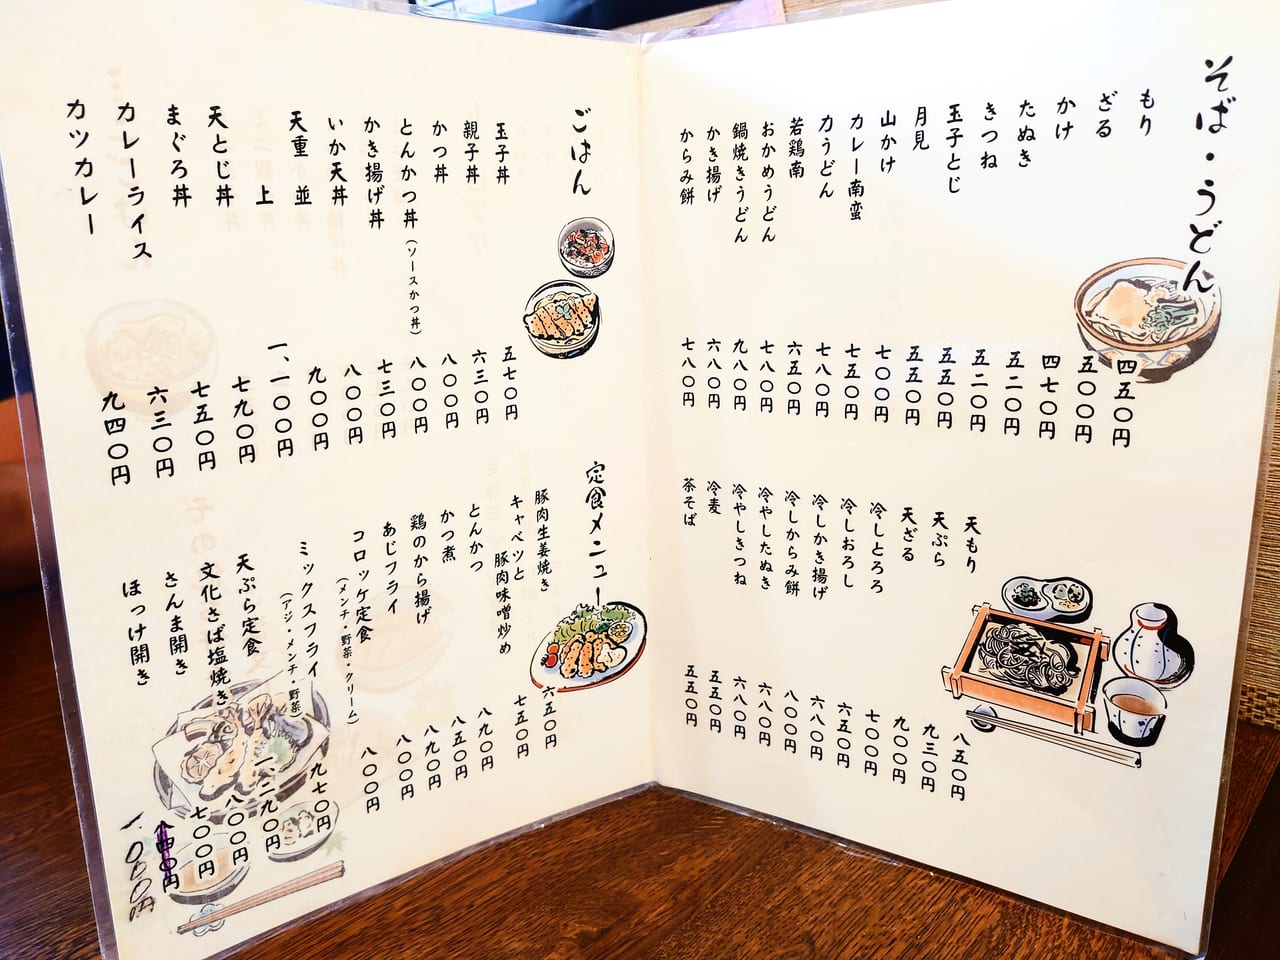 そば・うどん
もり 四五〇円
ざる 五〇〇円
かけ 四七〇円
たぬき 五二〇円
きつね 五二〇円
玉子とじ 五五〇円
月見 五五〇円
山かけ 七〇〇円
カレー南蛮 七五〇円
力うどん 七八〇円
若鶏南 六五〇円
おかめうどん 七八〇円
鍋焼きうどん 九八〇円
かき揚げ 六八〇円
からみ餅 七八〇円
天もり 八五〇円
天ぷら 九三〇円
天ざる 九〇〇円
冷しとろろ 七〇〇円
冷しおろし 六五〇円
冷しかき揚げ 六八〇円
冷しからみ餅 八〇〇円
冷やしたぬき 六八〇円
冷やしきつね 六八〇円
冷麦 五五〇円
茶そば 五五〇円
ごはん
玉子丼 五七〇円
親子丼 六三〇円
かつ丼 八〇〇円
とんかつ丼(ソースかつ丼) 八〇〇円
かき揚げ丼 七三〇円
いか天丼 八〇〇円
天重 並 九〇〇円
上 一、一〇〇円
天とじ丼 七九〇円
まぐろ丼 七五〇円
カレーライス 六三〇円
カツカレー 九四〇円
定食メニュー
豚肉生姜焼き 六五〇円
キャベツと
豚肉味噌炒め 七五〇円
とんかつ 八〇〇円
かつ煮 八五〇円
鶏のから揚げ 八九〇円
あじフライ 八〇〇円
コロッケ定食 八〇〇円
(メンチ・野菜・クリーム)
ミックスフライ 九七〇円
(アジ・メンチ・野菜)
天ぷら定食 一、二九〇円
文化さば塩焼き 八〇〇円
さんま開き 七〇〇円
ほっけ開き 八四〇円
1,000円